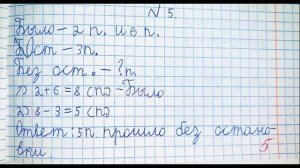 № 5.
Было – 2 п. и 6 п.
Ост – 3п.
Без ост. – ?п.
1) 2+6=8 (п.) – Было
2) 8-3=5 (п)
Ответ: 5п прошло без останов-
ки. 5